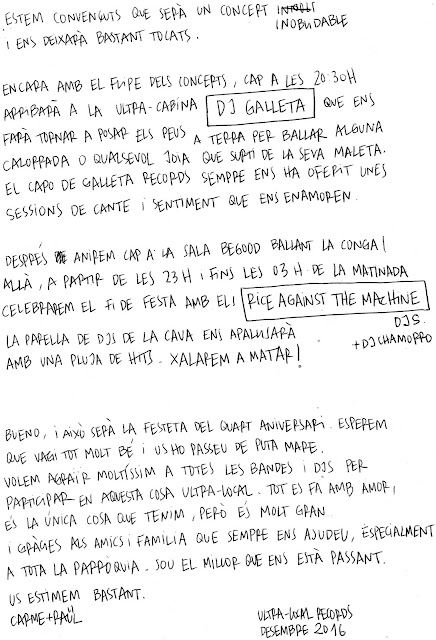 ESTEM CONVENÇUTS QUE SERÀ UN CONCERT INOBLIDABLE
I ENS DEIXARÀ BASTANT TOCATS.
ENCARA AMB EL FLIPE DELS CONCERTS, CAP A LES 20:30H
ARRIBARÀ A LA ULTRA-CABINA DJ GALLETA QUE ENS
FARÀ TORNAR A POSAR ELS PEUS A TERRA PER BALLAR ALGUNA
CALORRADA O QUALSEVOL JOIA QUE SURTI DE LA SEVA MALETA.
EL CAPO DE GALLETA RECORDS SEMPRE ENS HA OFERIT UNES
SESSIONS DE CANTE I SENTIMENT QUE ENS ENAMOREN.
DESPRÉS ANIREM CAP A LA SALA BEGOOD BALLANT LA CONGA!
ALLÀ, A PARTIR DE LES 23H I FINS LES 03H DE LA MATINADA
CELEBRAREM EL FI DE FESTA AMB ELS RICE AGAINST THE MACHINE
DJS.
LA PARELLA DE DJS DE LA CAVA ENS APALLISARÀ
+DJ CHAMORRO
AMB UNA PLUJA DE HITS. XALAREM A MATAR!
BUENO, I AIXÒ SERÀ LA FESTETA DEL QUART ANIVERSARI. ESPEREM
QUE VAGI TOT MOLT BÉ I US HO PASSEU DE PUTA MARE.
VOLEM AGRAÏR MOLTÍSSIM A TOTES LES BANDES I DJS PER
PARTICIPAR EN AQUESTA COSA ULTRA-LOCAL. TOT ES FA AMB AMOR,
ÉS LA ÚNICA COSA QUE TENIM, PERÒ ÉS MOLT GRAN.
I GRÀCIES ALS AMICS I FAMILIA QUE SEMPRE ENS AJUDEU, ESPECIALMENT
A TOTA LA PARRÒQUIA. SOU EL MILLOR QUE ENS ESTÀ PASSANT.
US ESTIMEM BASTANT.
CARME+RAÜL
ULTRA-LOCAL RECORDS
DESEMBRE 2016